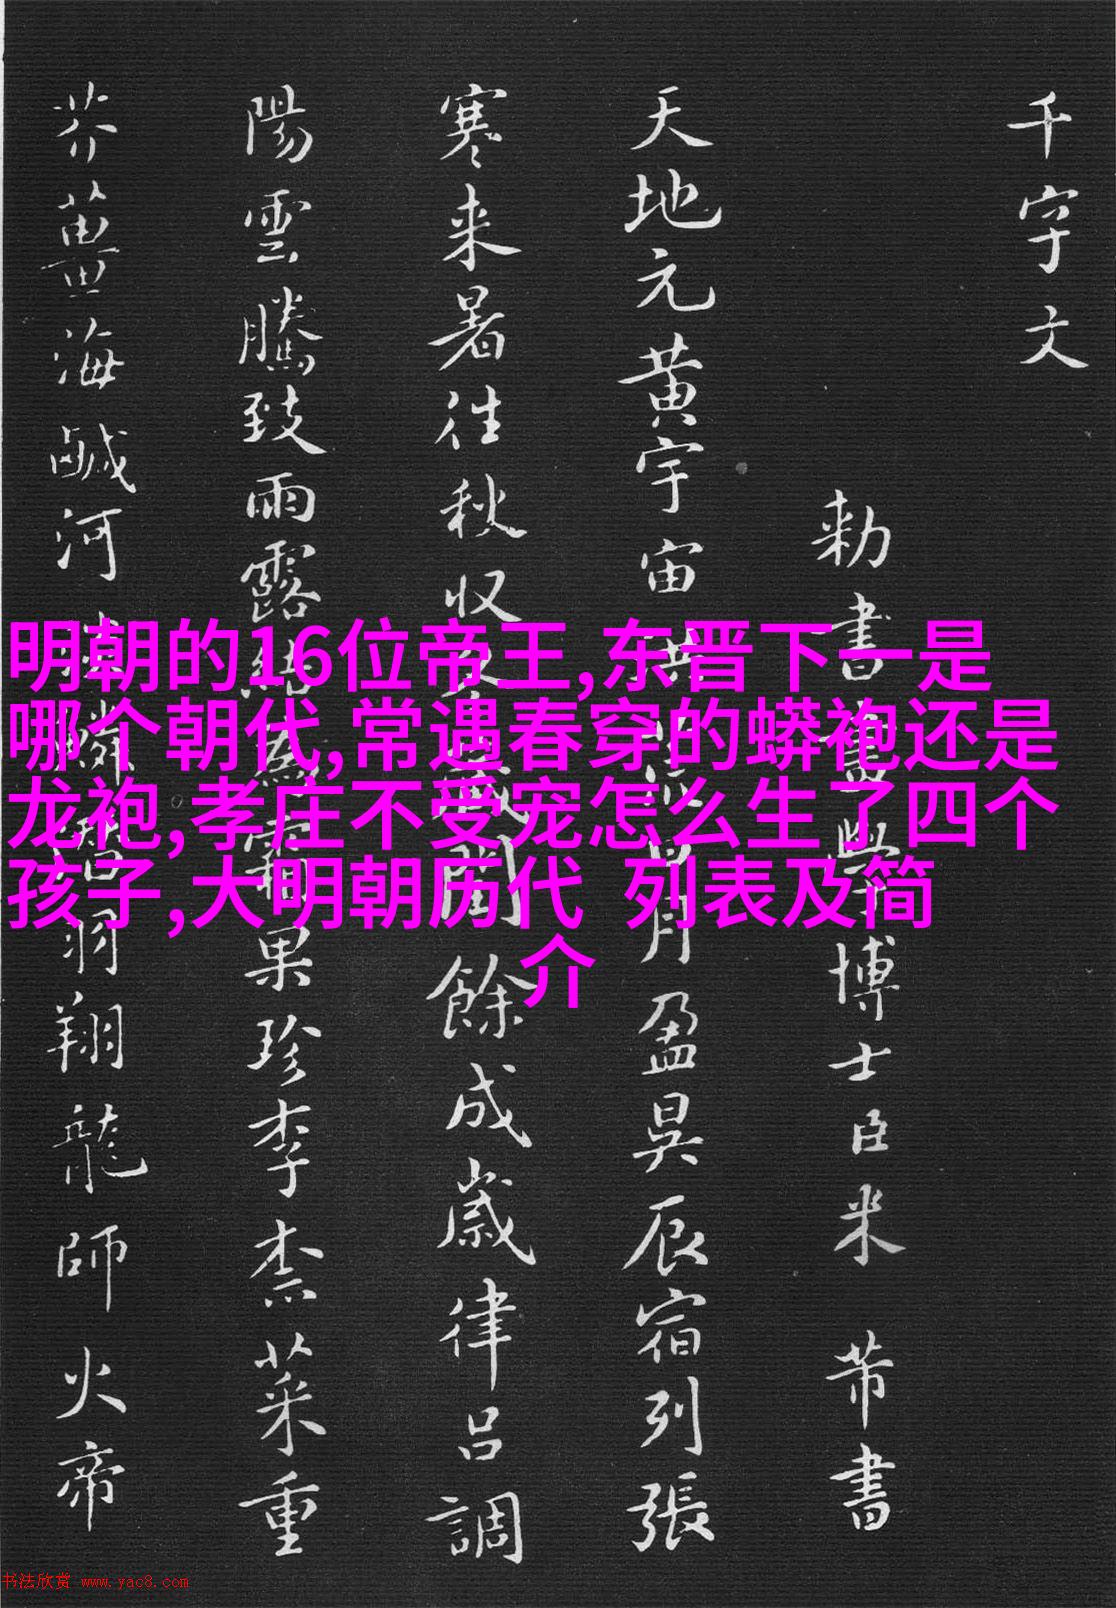 千字文
勅書畫學博士臣米 芾書
天地元黄宇宙洪荒日月盈昃辰宿列張
寒来暑往秋収冬藏閏餘成歲律呂調
陽雲騰致雨露結為霜果珍李柰菜重
芥薑海鹹河淡鱗潛羽翔龍師火帝
明朝的16位帝王,东晋下一是
哪个朝代,常遇春穿的蟒袍还是
龙袍,孝庄不受宠怎么生了四个
孩子,大明朝历代 列表及简
介
书法欣赏 www.yac8.com